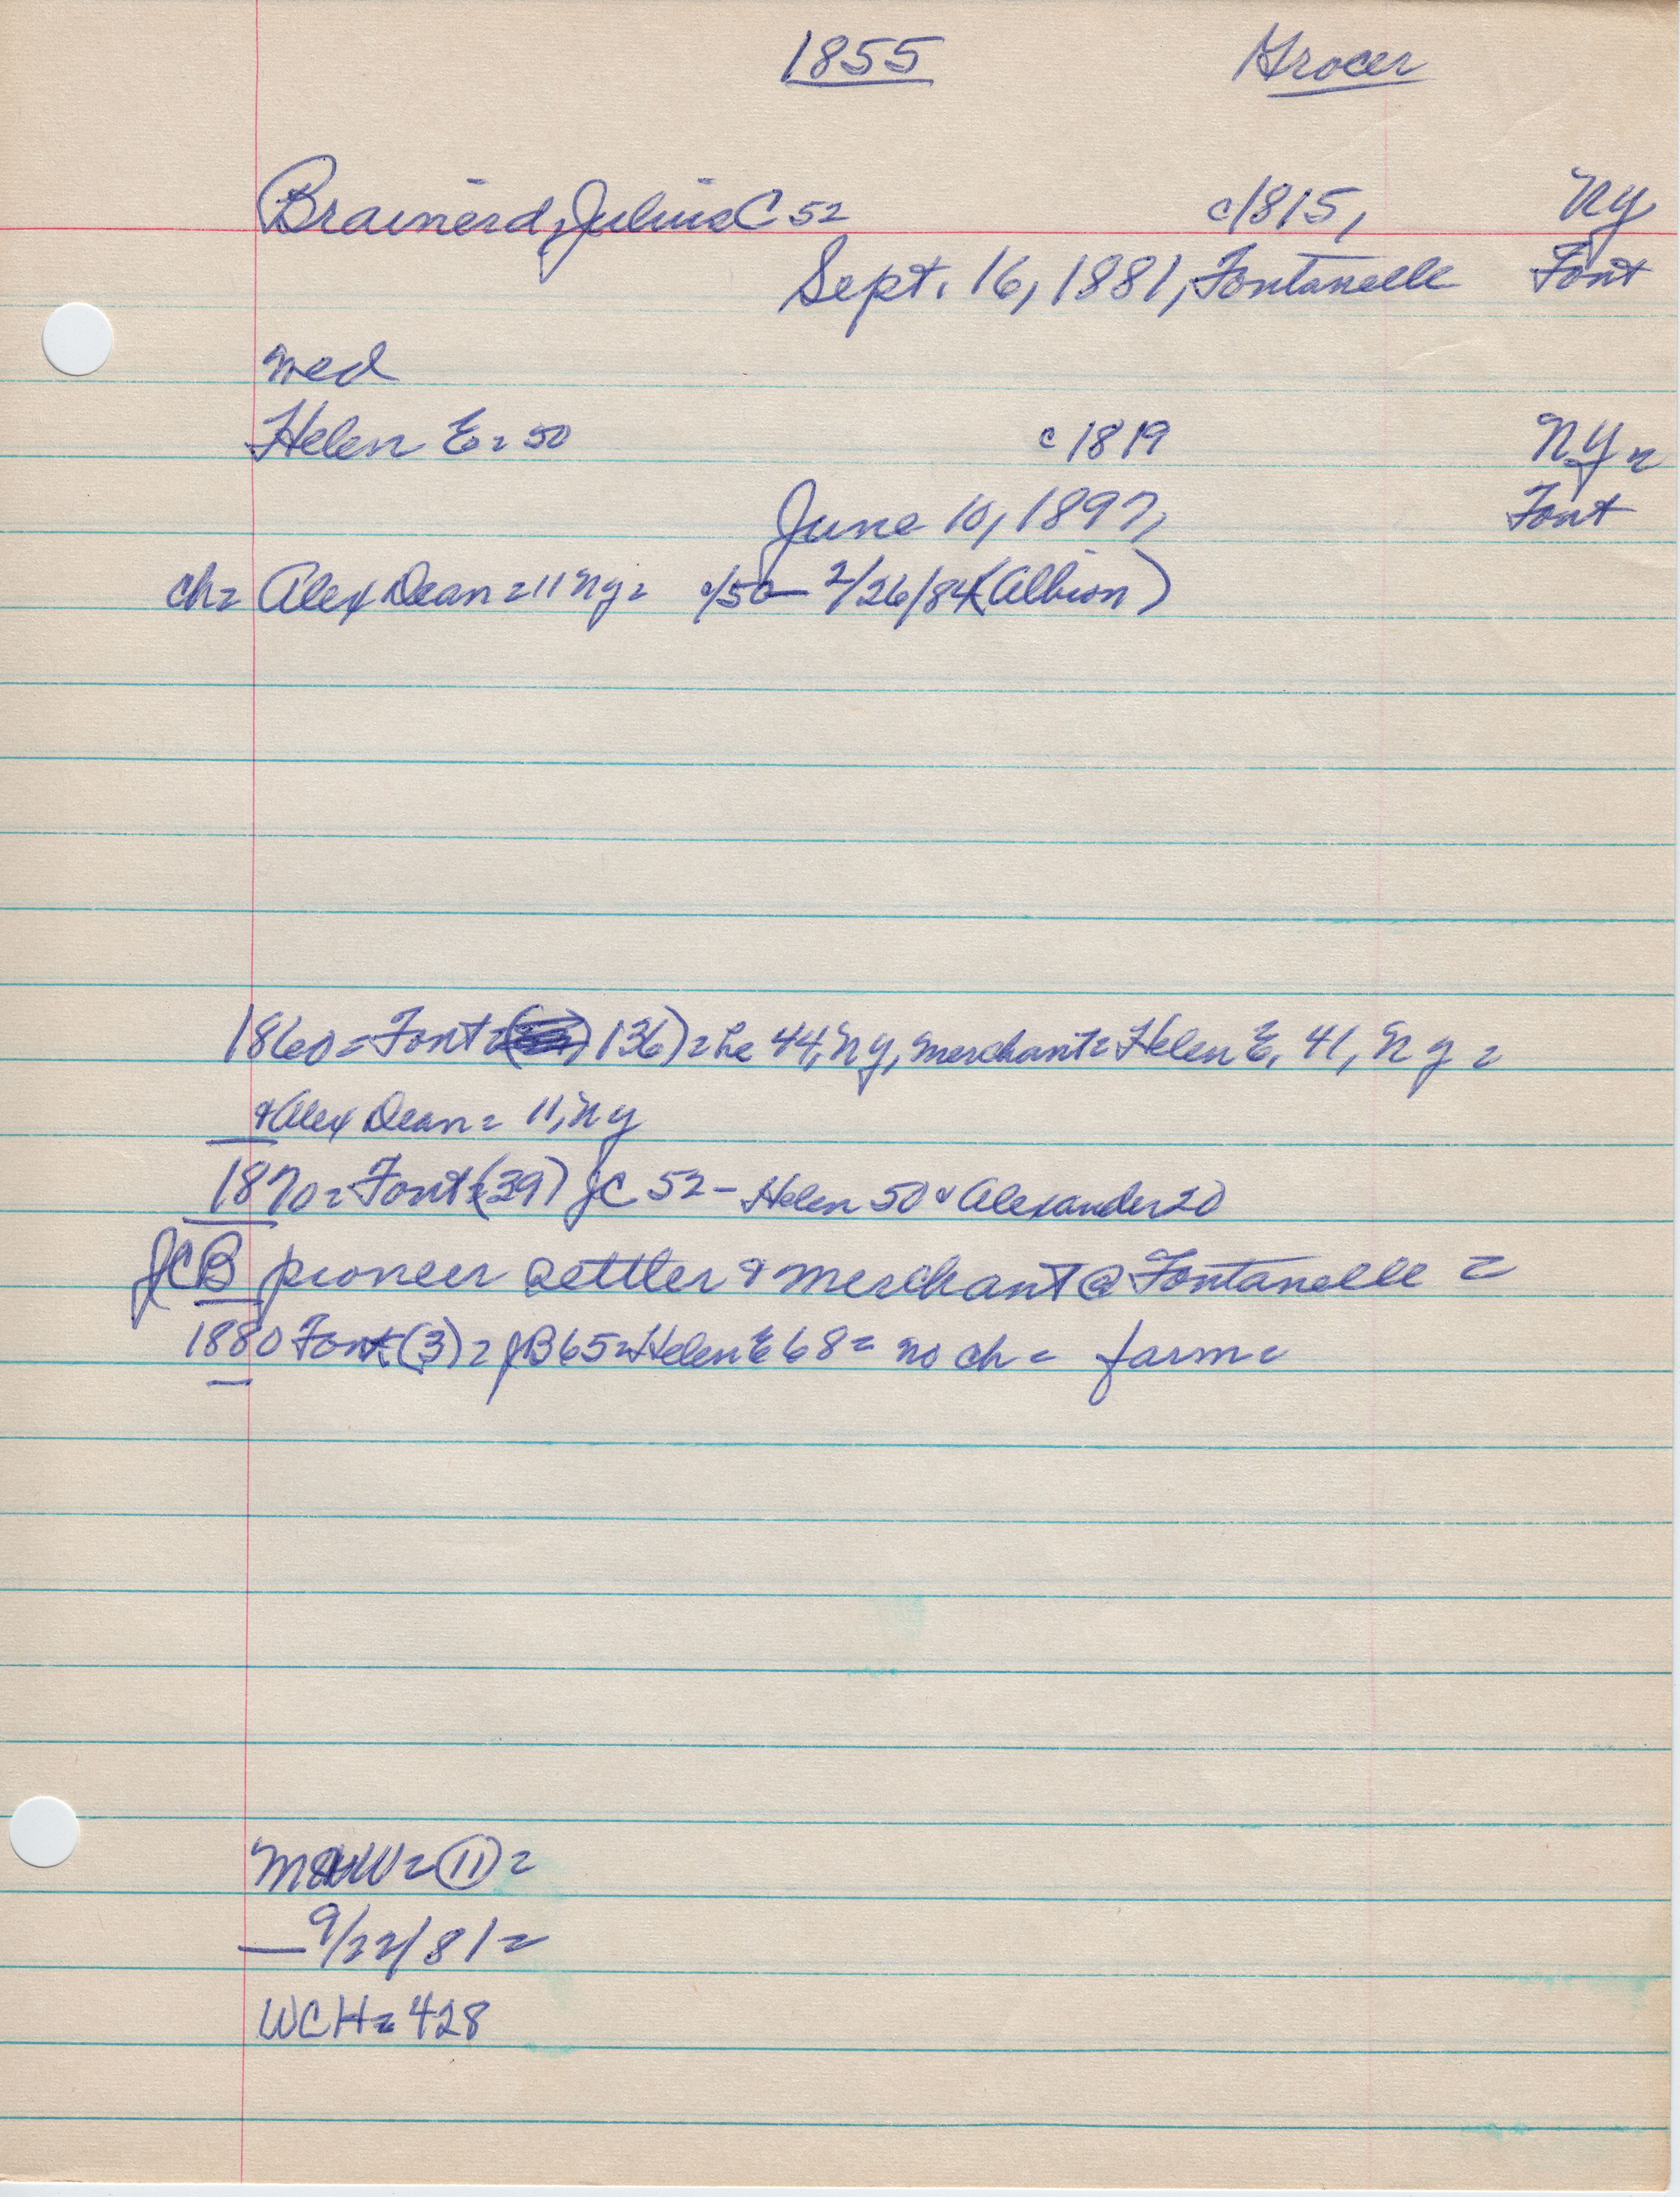 1855 Grocer
Brainerd, Julius C 52 c/1815, NY
Sept. 16, 1881, Fontanelle Font
wed
Helen E= 50 c 1819 NY=
June 10, 1897, Font
ch= Alex Dean = 11 Ny= c/50 — 2/26/84 (Albion)
1860 = Font = ( 136) = he 44, Ny, merchant = Helen E, 41, Ny =
& Alex Dean = 11, Ny
1870 = Font (39) JC 52 - Helen 50 & Alexander 20
JCB pioneer settler & merchant @ Fontanelle =
1880 Font (3) = JB 65 = Helen E 68 = no ch = farm =
= (11) =
— 9/22/81 =
WCH = 428